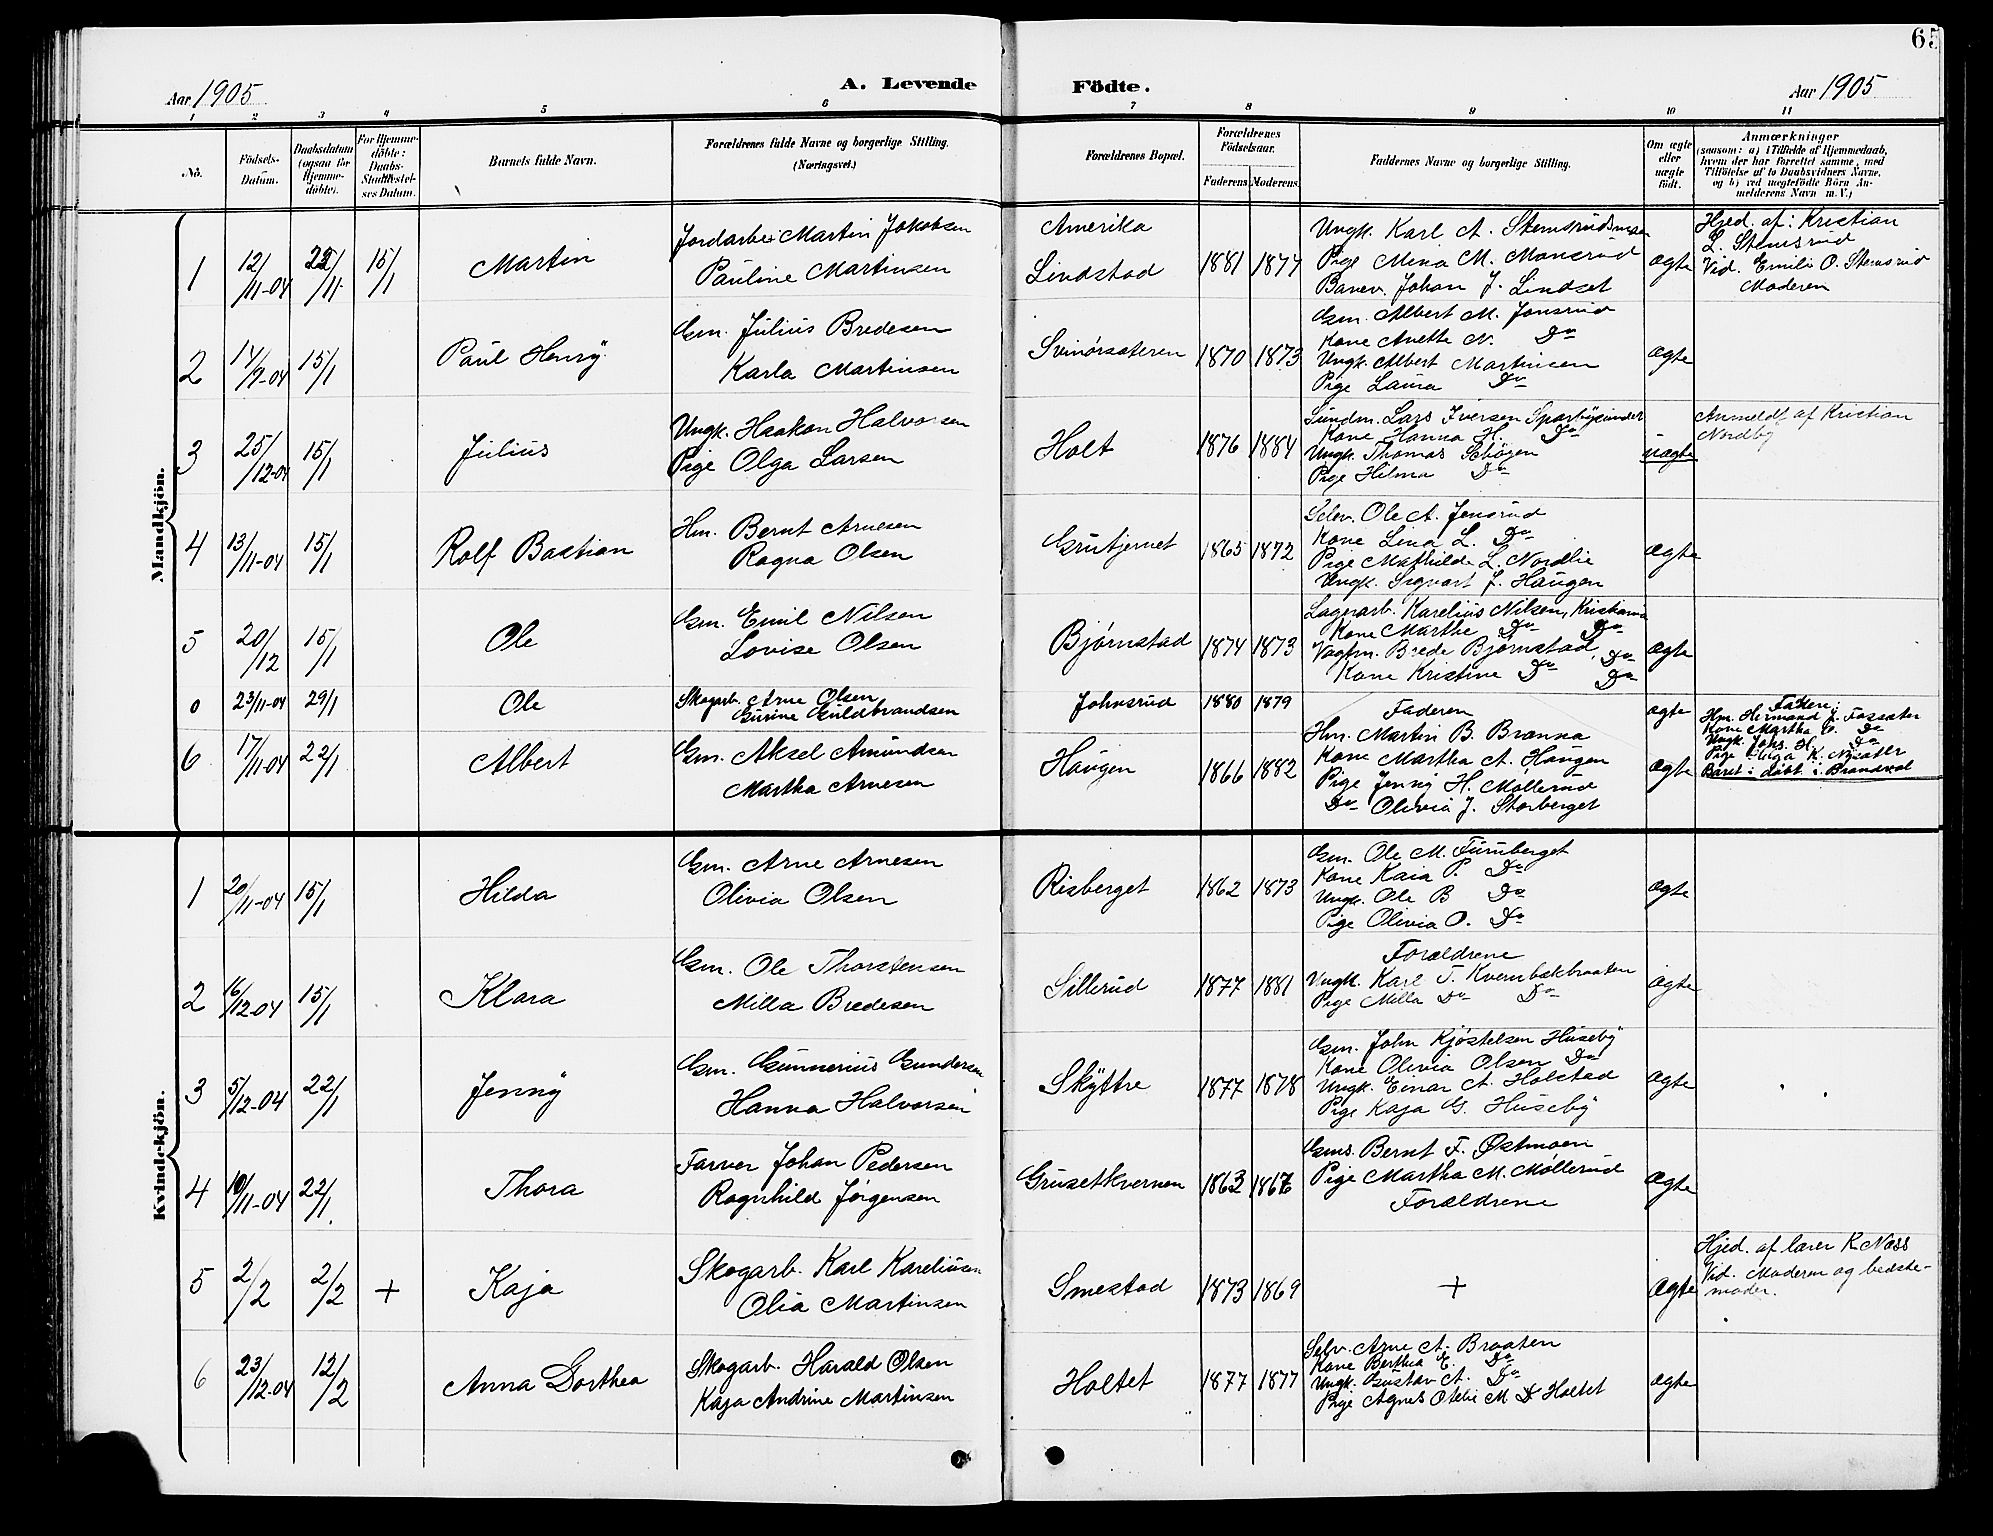 65
Aar 1905
A. Levende Födte.
Aar 1905
1 2 3 4 5 6 7 8 9 10 11
No.
Födsels-Datum.
Daabsdatum (ogsaa for Hjemme-döbte).
For Hjemme-döbte: Daabs-Stadfæstel-ses Datum.
Barnets fulde Navn.
Forældrenes fulde Navne og borgerlige Stilling. (Næringsvei.)
Forældrenes Bopæl.
Forældrenes Födselsaar.
Faderens Moderens
Faddernes Navne og borgerlige Stilling.
Om ægte eller uægte födt.
Anmærkninger
(saasom: a) i Tilfælde af Hjemmedaab, hvem der har forrettet samme, med Tilföielse af to Daabsvidners Navne, og b) ved uægtefödte Börn An-melderens Navn m. V.)
Mandkjön.
1 12/11-04 22/11 15/1 Martin
Jordarbei. Martin Jakobsen
Pauline Martinsen
Amerika
Lindstad 1881 1877
Ungk. Karl A. Stemsrudsmoen
Pige Mina M. Monsrud
Banev. Johan J. Lindset
ægte
Hjed. af: Kristian
L. Stemsrud
Vid. Emilie O. Stemsrud
Moderen
2 14/9-04 15/1 Paul Henry
Gm. Julius Bredesen
Karla Martinsen
Svinørsæteren 1870 1873
Gm. Albert M. Jonsrud
Kone Anette N. Do
Ungk. Albert Martinsen
Pige Laura Do
ægte
3 25/12-04 15/1 Julius
Ungk. Haakon Halvorsen
Pige Olga Larsen
Holt 1876 1884
Lars Iversen
Kone Hanna H. Do
Ungk. Thomas
Pige Hilma Do
uægte
Anmeldt af Kristian
Nordby
4 13/11-04 15/1 Rolf Bastian
Hm. Bernt Arnesen
Ragna Olsen
Grutjernet 1865 1872
Selv. Ole A. Jensrud
Kone Lina L. Do
Pige Mathilde L. Nordlie
Ungk. Sigvart J. Haugen
ægte
5 20/12 15/1 Ole
Gm. Emil Nilsen
Lovise Olsen
Bjørnstad 1874 1873
Lagerarb. Karelius Nilsen, Kristiania
Kone Marthe Do Do
Brede Bjørnstad, Do
Kone Kristine Do Do
ægte
0 23/11-04 29/1 Ole
Skogarb. Arne Olsen
Gurine Guldbrandsen
Johnsrud 1880 1879
Faderen
ægte
Faddere:
Hm. Hermand J. Fossæter
Kone Martha E. Do
Ungk. Johs. H. Do
Pige Olga K. Nysæter
Baret i daab i Brandval
6 17/11-04 22/1 Albert
Gm. Aksel Amundsen
Martha Arnesen
Haugen 1866 1882
Hm. Martin B. Branna
Kone Martha A. Haugen
Pige Jenny H. Møllerud
Do Olivia J. Storberget
ægte
Kvindekjön.
1 20/11-04 15/1 Hilda
Gm. Arne Arnesen
Olivia Olsen
Risberget 1862 1873
Gm. Ole M. Furuberget
Kone Kaia P. Do
Ungk. Ole B Do
Pige Olivia O. Do
ægte
2 16/12-04 15/1 Klara
Gm. Ole Thorstensen
Milla Bredesen
Sillerud 1877 1881
Forældrene
Ungk. Karl T. Kvernbækbraaten
Pige Milla Do Do
ægte
3 5/12-04 22/1 Jenny
Gm. Gunnerius Gundersen
Hanna Halvorsen
Skyttre 1877 1878
Gm. John Kjøstelsen Huseby
Kone Olivia Olsen Do
Ungk. Einar A. Holstad
Pige Kaja G. Huseby
ægte
4 10/11-04 22/1. Thora
Farver Johan Pedersen
Ragnhild Jørgensen
Grusetkvernen 1863 1867
Gms. Bernt F. Østmoen
Pige Martha M. Møllerud
Forældrene
ægte
5 2/2 2/2 + Kaja
Skogarb. Karl Kareliusen
Olia Martinsen
Smestad 1873 1869
+
ægte
Hjed. af lærer K. Næss
Vid. Moderen og bedste-
moder.
6 23/12-04 12/2 Anna Dorthea
Skogarb. Harald Olsen
Kaja Andrine Martinsen
Holtet 1877 1877
Selv. Arne A. Braaten
Kone Berthea E. Do
Ungk. Gustav A. Do
Pige Agnes Otelie M. Do Holtet
ægte